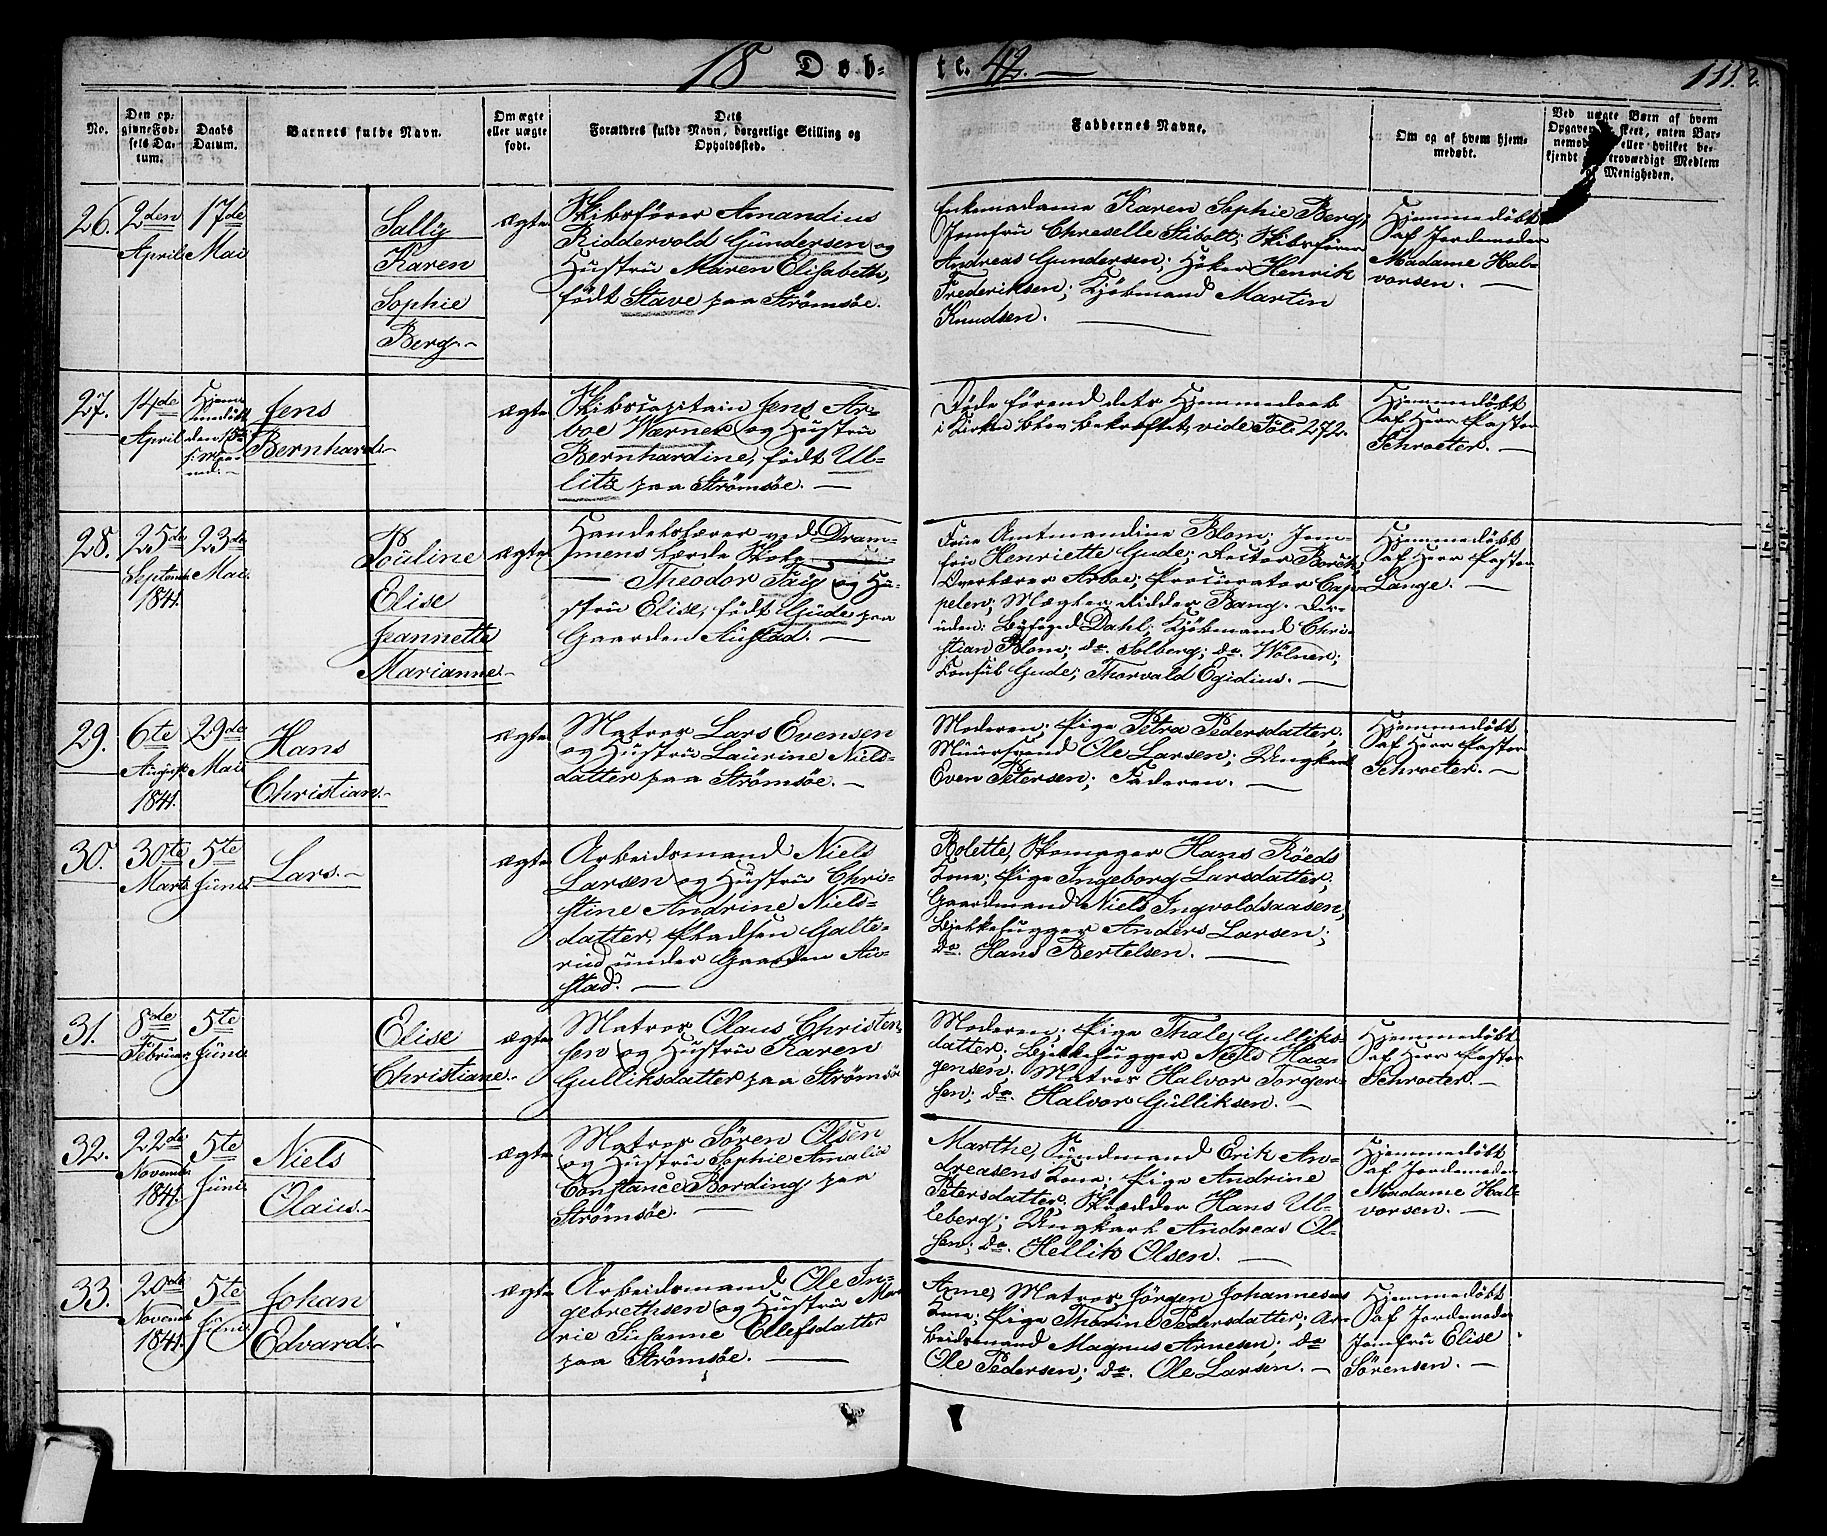 18 Døb-
te. 42.
111.
No.
Den op-
givne Fød-
sels Da-
tum.
Daabs
Datum.
Barnets fulde Navn.
Om ægte
eller uægte
født.
Dets
Forældres fulde Navn, borgerlige Stilling og
Opholdssted.
Faddernes Navne.
Om og af hvem hjem-
medøbt.
Ved uægte Børn af hvem
Opgaven skeet, enten Bar-
nemod eller hvilket be-
kjendt troværdigt Medlem
Menigheden.
26.
2den
April
17de
Mai
Sally
Karen
Sophie
Berg.-
ægte
Skibsfører Amandius
Riddervold Gundersen og
Hustrü Maren Elisabeth,
født Stave paa Strømsøe.
Enkemadame Karen Sophie Berg;
Jomfrü Chreselle Stibolt; Skibsfører
Andreas Gundersen; Høker Henrik
Frederiksen; Kjøbmand Martin
Knudsen.
Hjemmedøbt
af Jordemoder
Madame Hal-
vorsen. -
27.
14de
April
Hjem-
medøbt
den 15de
Jens
Bernhard.-
ægte
Skibscapitain Jens Ar-
boe Werner og Hustrü
Bernhardine, født Ub-
litz paa Strømsøe. -
Døde førend dets Hjemmedaab
i Kirken blev bekræftet, vide Fol. 272.
Hjemmedøbt
af Herr Pastor
Schroeter. -
28.
25de
Septemb.
1841.
23de
Mai
Pouline
Elise
Jeannette
Marianne.-
ægte
Handelslærer ved Dram-
mens lærde Skole
Theodor Faig og Hü-
strü Elise, født Güde paa
Gaarden Aüstad. -
Frue Amtmandine Blom; Jom-
frü Henriette Gude; Rector Borch;
Overlærer Arboe; Procurator Cap-
pelen; Mægler Ridder Bang. Des-
uden: Byfoged Dahl; Kjøbmand Chri-
stian Blom; do. Solberg; do. Wölner;
Konsül Gude; Thorvald Egidius. -
Hjemmedøbt
af Herr Pastor
Lange. -
29.
6te
August
1841.
29de
Mai
Hans
Christian.-
ægte
Matros Lars Evensen
og Hustrü Laurine Niels-
datter paa Strømsøe. -
Moderen; Pige Petra Pedersdatter;
Müürsvend Ole Larsen; Ungkarl
Even Petersen; Faderen. -
Hjemmedøbt
af Herr Pastor
Schroeter. -
30.
30te
Marts
5te
Jüni
Lars.-
ægte
Arbeidsmand Niels
Larsen og Hustrü Chri-
stine Andrine Niels-
datter, Pladsen Galte-
rud under Gaarden Au-
stad. -
Bolette, Skomager Hans Röeds
Kone; Pige Ingeborg Larsdatter;
Gaardmand Niels Ingvoldsaasen;
Bjelkehugger Anders Larsen;
do. Hans Bertelsen. -
31.
8de
Februar
5te
Jüni
Elise
Christiane.-
ægte
Matros Olaus Christen-
sen og Hustrü Karen
Gulliksdatter paa Strømsøe
Moderen; Pige Thale Gulliks-
datter; Bjelkehugger Niels Haa-
gensen. Matros Halvor Torger-
sen; do. Halvor Gülliksen. -
Hjemmedøbt
af Herr Pastor
Schroeter. -
32.
22de
Novemb.
1841.
5te
Jüni
Niels
Olaus.-
ægte
Matros Sören Olsen
og Hustrü Sophie Amalie
Constance Bording, paa
Strømsøe. -
Marthe, Fündmand Erik An-
dreasens Kone; Pige Andrine
Petersdatter. Skrædder Hans Ul-
leberg; Ungkarl Andreas Ol-
sen; do. Hellik Olsen. -
Hjemmedøbt
af Jordemoder
Madame Hal-
vorsen. -
33.
20de
Novemb.
1841.
5te
Jüni
Johan
Edvard.-
ægte
Arbeidsmand Ole In-
gebrethsen og Hustrü Ma-
rie Susanne Ellefsdatter
paa Strømsøe. -
Anne, Matros Jörgen Johannesens
Kone; Pige Thorine Pedersdatter; Ar-
beidsmand Magnus Arnesen; do
Ole Pedersen; do. Ole Larsen. -
Hjemmedøbt
af Jordemoder
Jomfrü Elise
Sörensen. -